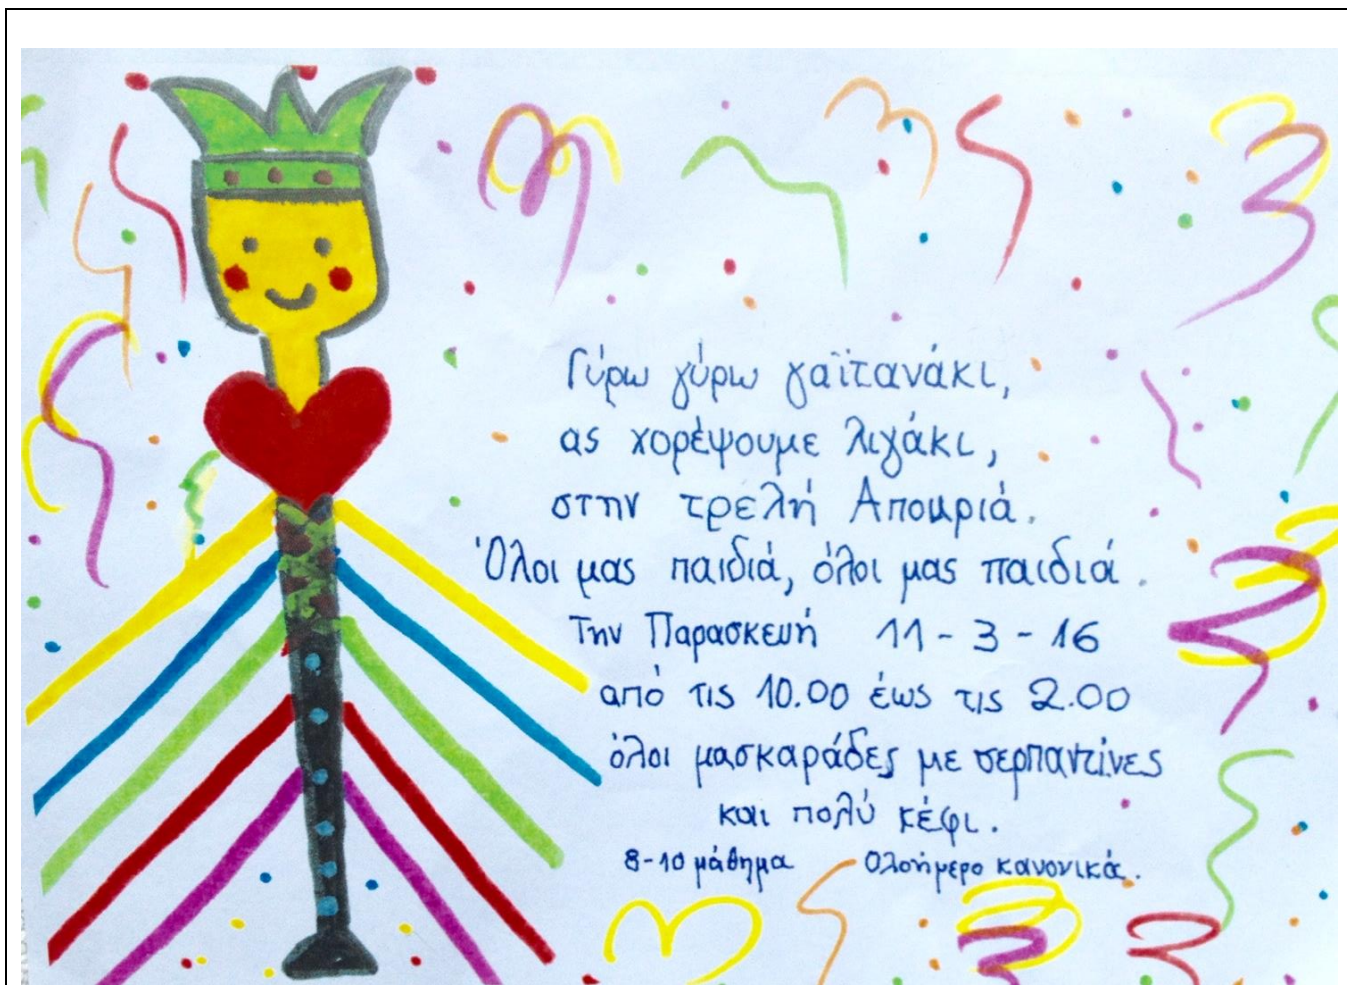 Γύρω γύρω γαϊτανάκι,
ας χορέψουμε λιγάκι,
στην τρελή Αποκριά.
Όλοι μας παιδιά, όλοι μας παιδιά.
Την Παρασκευή 11-3-16
από τις 10.00 έως τις 2.00
όλοι μασκαράδες με σερπαντίνες
και πολύ κέφι.
8-10 μάθημα Ολοήμερο κανονικά.